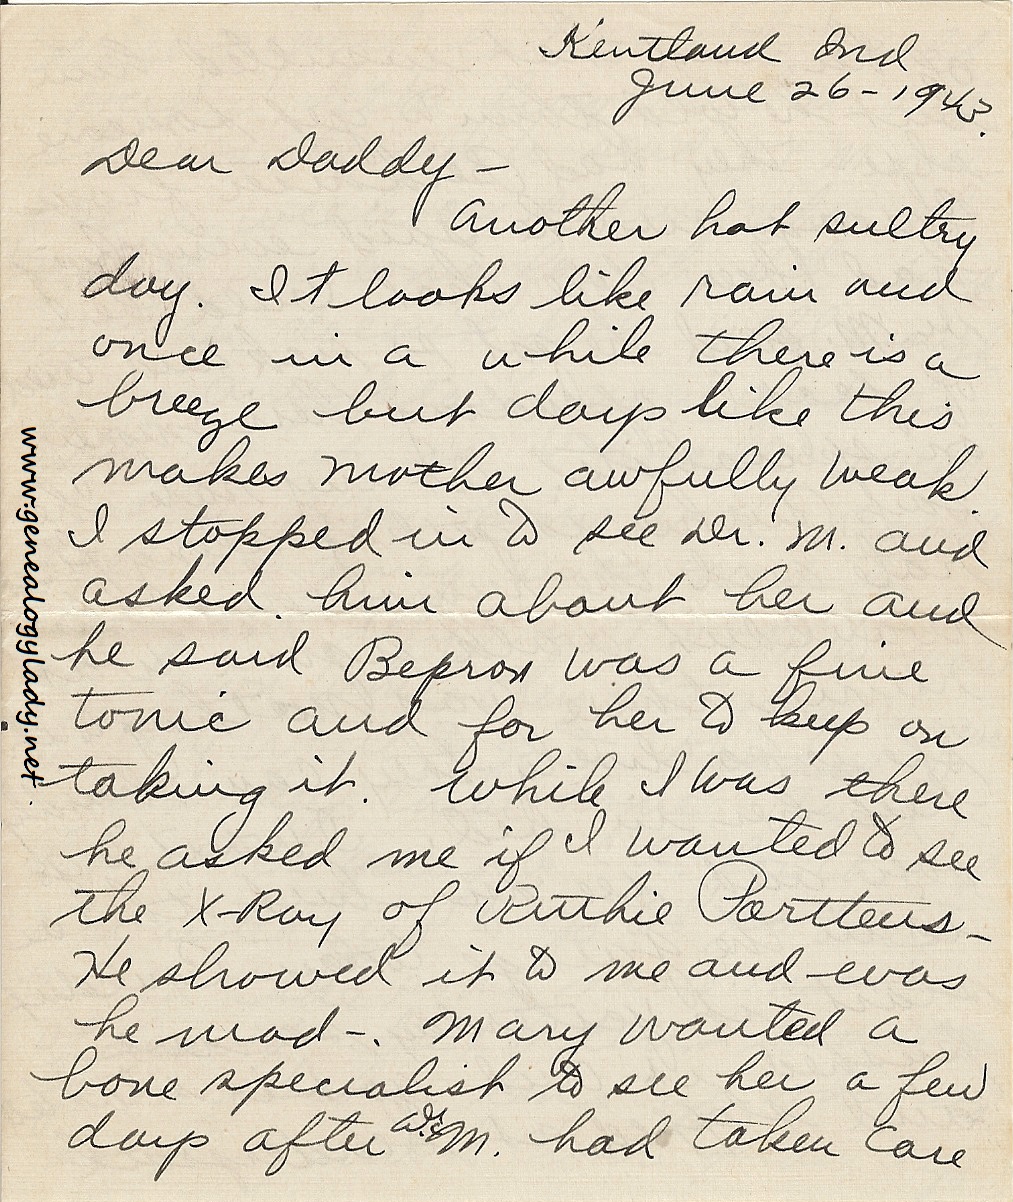 Kentland Ind
June 26-1943.
Dear Daddy-
Another hot sultry
day. It looks like rain and
once in a while there is a
breeze but days like this
makes mother awfully weak.
I stopped in to see Dr. M. and
asked him about her and
he said Bepron was a fine
tonic and for her to keep on
taking it. While I was there
he asked me if I wanted to see
the X-Ray of Ruthie Partteus-
He showed it to me and was
he mad-. Mary wanted a
bone specialist to see her a few
days after Dr. M. had taken care
www.genealogylady.net